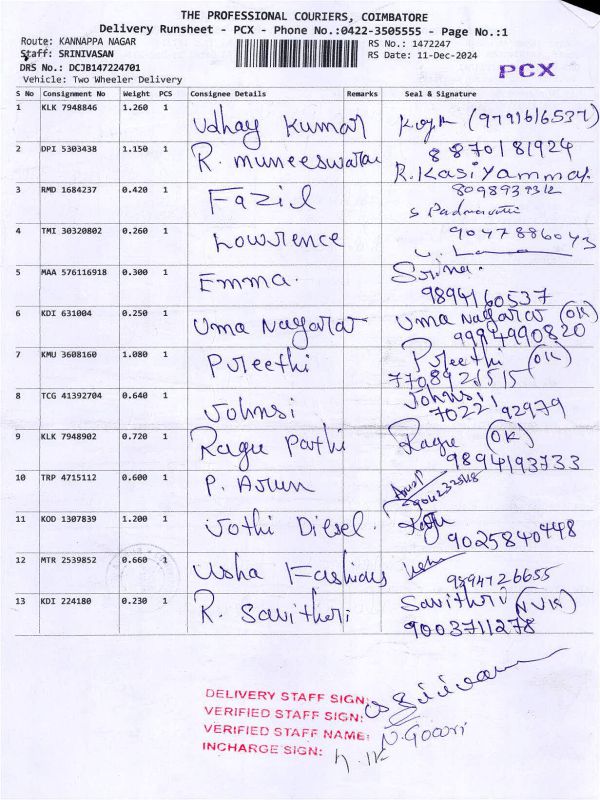 THE PROFESSIONAL COURIERS, COIMBATORE
Delivery Runsheet - PCX - Phone No.:0422-3505555 - Page No.:1
Route: KANNAPPA NAGAR
Staff: SRINIVASAN
DRS No.: DCJB147224701
Vehicle: Two Wheeler Delivery
RS No.: 1472247
RS Date: 11-Dec-2024
PCX
S No Consignment No Weight PCS Consignee Details Remarks Seal & Signature
1 KLK 7948846 1.260 1 Udhay Kumar (9791616537)
2 DPI 5303438 1.150 1 R. muneeswaran 8870181924
R. Kasiyammal
3 RMD 1684237 0.420 1 Fazil
S Padmavathi
4 TMI 30320802 0.260 1 Lowrence 9047886043
5 MAA 576116918 0.300 1 Emma.
9894160537
6 KDI 631004 0.250 1 Uma Nagarar Uma Nagarar (OK)
9994990820
7 KMU 3608160 1.080 1 Preethi Preethi (OK)
7708925515
8 TCG 41392704 0.640 1 Johnsi Johnsi
7022192979
9 KLK 7948902 0.720 1 Ragu Pathi Ragu (OK)
9894193733
10 TRP 4715112 0.600 1 P. Arun
11 KOD 1307839 1.200 1 Jothi Diesel.
9025840448
12 MTR 2539852 0.660 1 Usha Fashions Usha
9894726655
13 KDI 224180 0.230 1 R. Savitheri Savithri
9003711278
DELIVERY STAFF SIGN:
VERIFIED STAFF SIGN:
VERIFIED STAFF NAME: N. Gowri
INCHARGE SIGN: